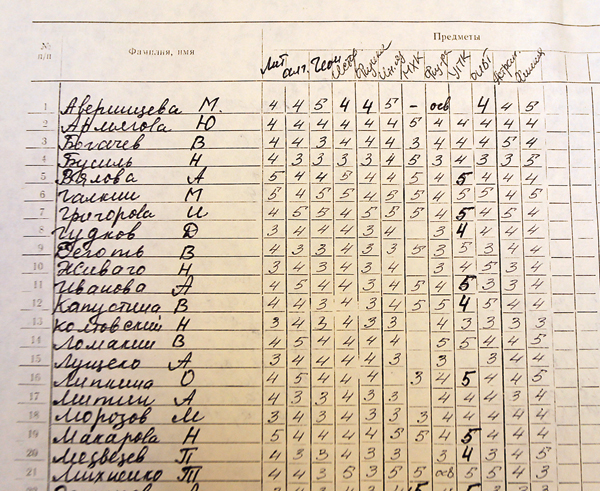 Предметы
№ п/п Фамилия, имя Лит алг. Геом Ист Физика Ин.яз МХК Физ-ра УПК ОБЖ Астрон. Химия
1 Аверинцева М. 4 4 5 4 4 5 - осв 4 4 5
2 Ю 4 4 4 4 4 4 4 5 4 4 4 4
3 Богачев В 4 4 3 4 4 4 3 4 4 4 5 4
4 Бусиль Н 4 3 3 3 3 4 5 3 4 3 3 5
5 Вялова А 5 4 4 5 4 4 5 4 5 4 4 4
6 Галкин М 5 4 5 5 4 5 5 4 5 5 4 5
7 Григорова И 4 5 5 4 5 5 5 4 5 4 5 4
8 Гудков Д 3 4 4 4 3 4 3 4 4 4 4
9 Деготь В 4 3 3 4 3 3 3 5 3 5 3 4 4
10 Живаго Н 3 4 3 4 3 4 3 4 5 3 4
11 Иванова А 4 5 4 4 3 4 5 4 5 3 3 4
12 Капустина В 4 4 3 4 3 4 5 5 4 5 4 4
13 Колтовский Н 3 4 3 3 3 4 3 3 3 3
14 Ломакин В 4 5 4 4 4 4 5 5 4 4 5
15 Лущеко А 3 4 4 4 4 3 3 3 4 4
16 Липнина О 4 5 4 4 4 3 4 5 4 4 5
17 Митин А 4 3 3 4 3 3 4 4 4 3 4
18 Морозов М 3 4 3 4 3 3 3 4 4 4 4 4
19 Макарова Н 5 4 4 4 4 5 5 4 5 4 4 4
20 Медведев П 4 3 3 4 3 3 3 4 3 4 4
21 Михненко Т 4 4 3 5 3 5 5 осв 5 5 4 3